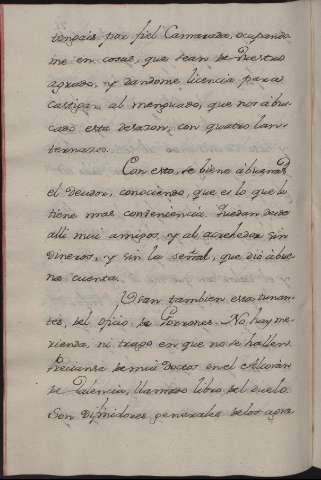 tengais por fiel Camarada, ocupando
me en cosas, que sean de Vuestro
agrado, y dandome licencia para
castigar al menguado, que nos â bus
cado esta desazon, con quatro lan-
ternazos.
Con esto, se biene â buenas
el Deudor, conociendo, que es lo que le
tiene mas conveniencia. Quedan desde
alli mui amigos, y al acrehedor sin
Dineros, y sin la señal, que dió â bue
na cuenta.
Usan tambien estos tunan-
tes, del oficio de Gorrones. No hay me-
rienda, ni trago en que no se hallen.
Precianse de mui Doctos en el Alcorán
de Palencia, llamado libro del duelo.
Son Difinidores generales de los agra-